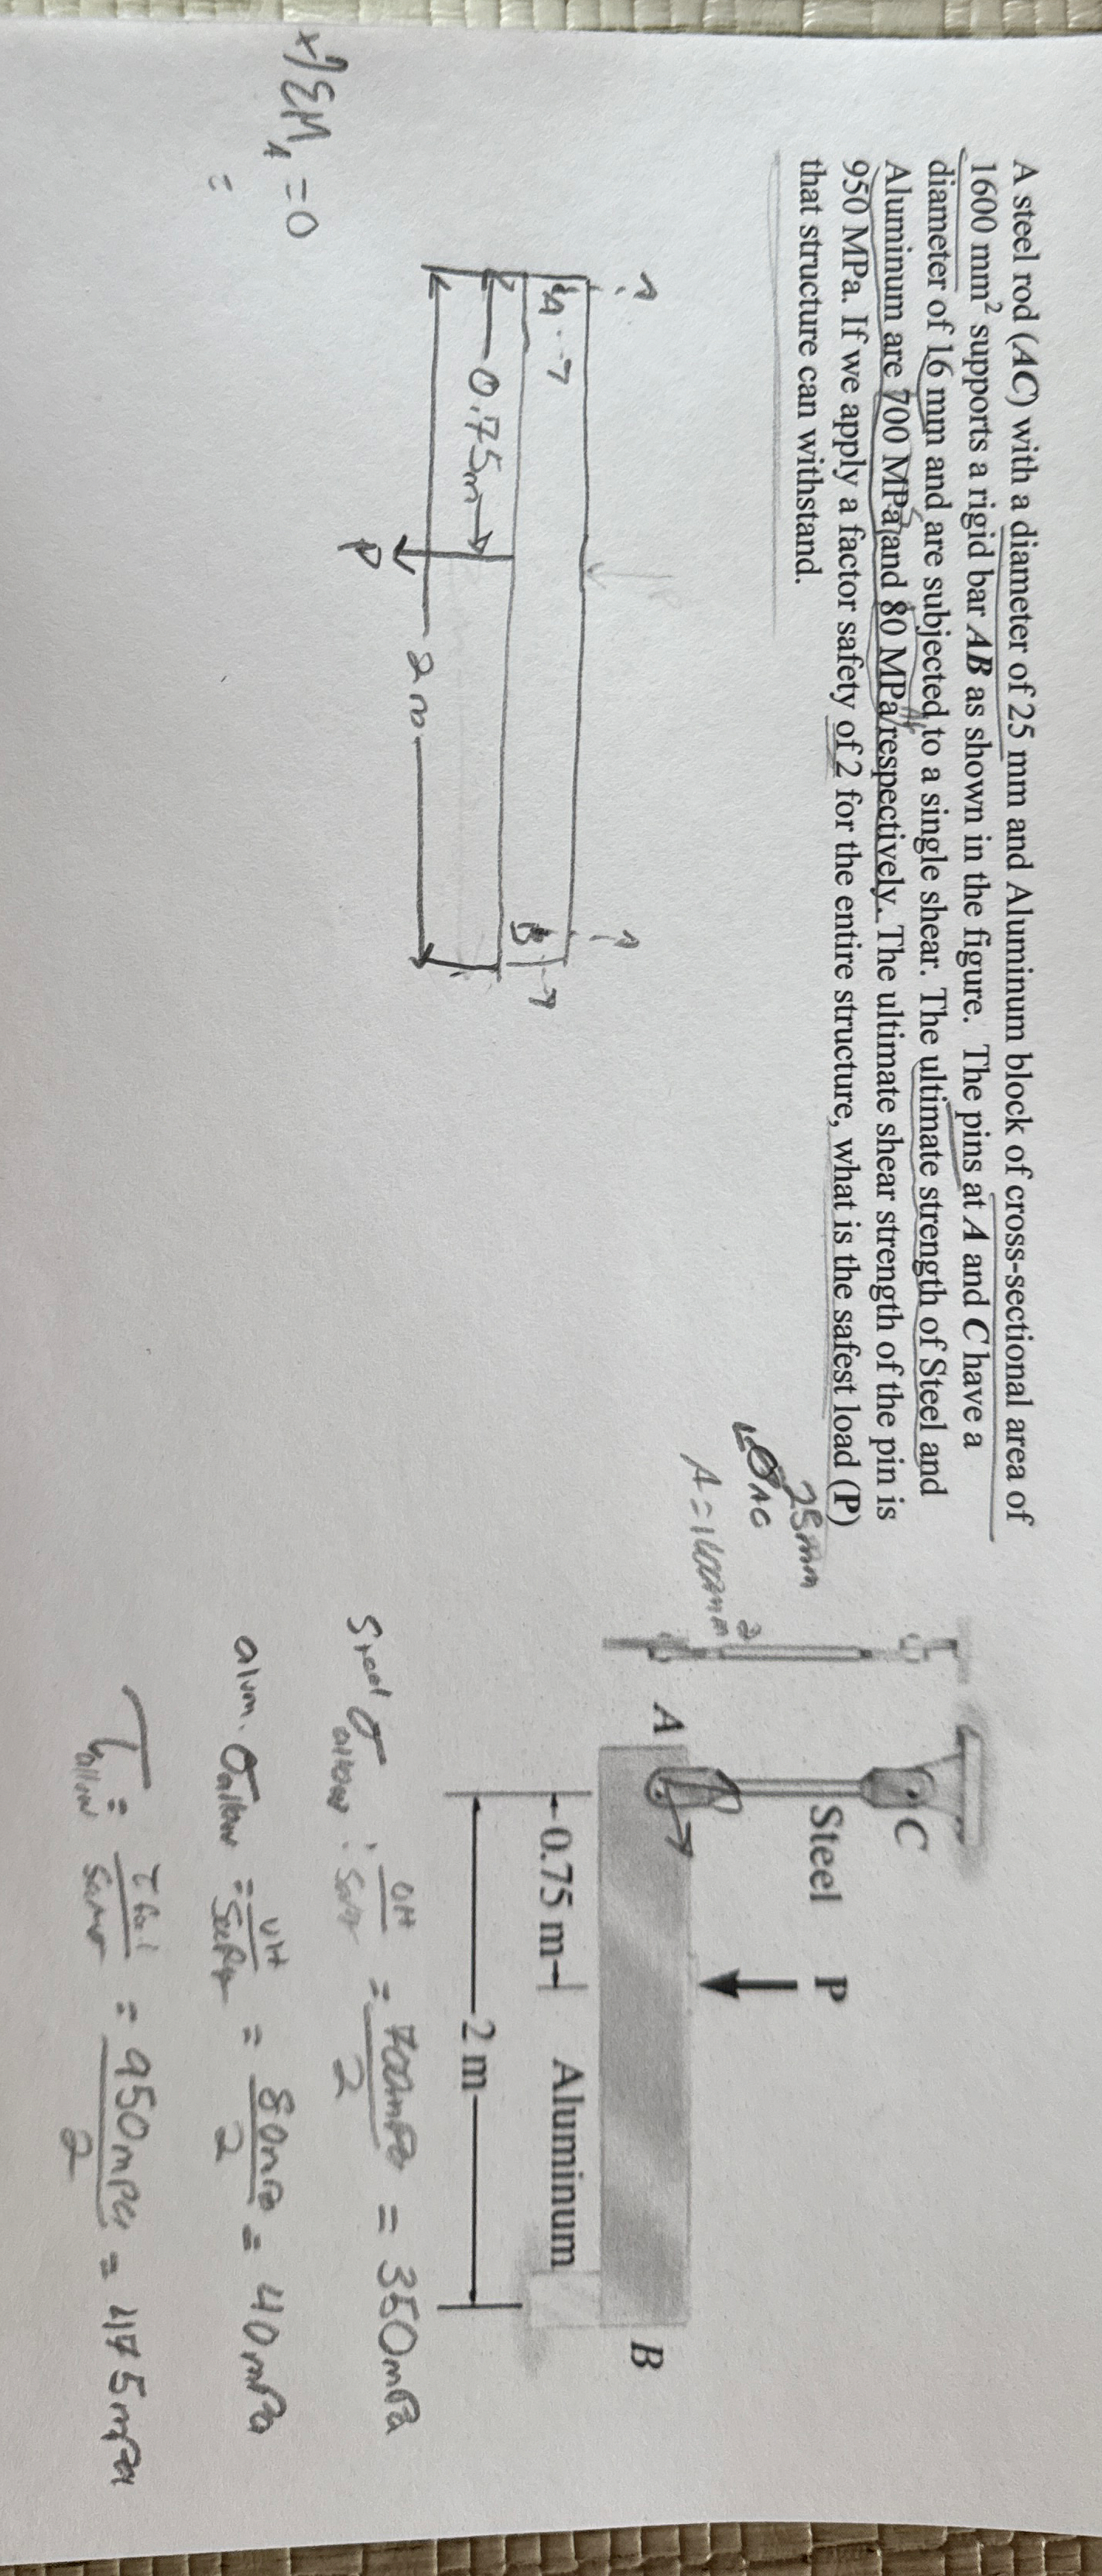 A steel rod (AC) with a diameter of 25 mm and Aluminum block of cross-sectional area of
1600 mm² supports a rigid bar AB as shown in the figure. The pins at A and C have a
diameter of 16 mm and are subjected to a single shear. The ultimate strength of Steel and
Aluminum are 700 MPa and 80 MPa respectively. The ultimate shear strength of the pin is
950 MPa. If we apply a factor safety of 2 for the entire structure, what is the safest load (P)
that structure can withstand.
25mm
AC
C
Steel
P
A
B
0.75 m
Aluminum
2 m
A
B
0.75m
P
2m
ΣM_A = 0
=
Steel σ_allow : = 700mPa / 2 = 350mPa
alum. σ_allow = = 80mPa / 2 = 40mPa
τ_allow = = 950mPa / 2 = 475mPa